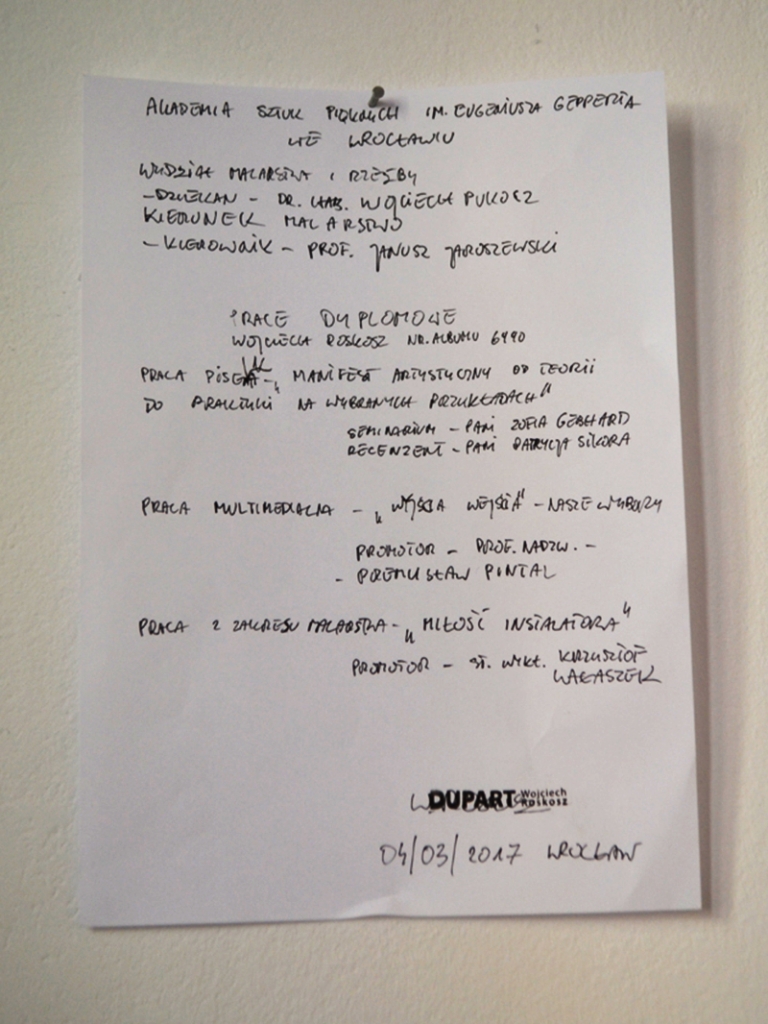 AKADEMIA SZTUK PIĘKNYCH IM. EUGENIUSZA GEPPERTA
WE WROCŁAWIU
WYDZIAŁ MALARSTWA I RZEŹBY
- DZIEKAN - DR. HAB. WOJCIECH PUKOCZ
KIERUNEK MALARSTWO
- KIEROWNIK - PROF. JANUSZ JAROSZEWSKI
PRACE DYPLOMOWE
WOJCIECH ROSKOSZ NR. ALBUMU 6490
PRACA - „MANIFEST ARTYSTYCZNY OD TEORII
DO PRAKTYKI NA WYBRANYCH PRZYKŁADACH"
SEMINARIUM - PANI ZOFIA GEBHARD
RECENZENT - PANI PATRYCJA SIKORA
PRACA MULTIMEDIALNA - „WYJŚCIA WEJŚCIA" - NASZE WYBORY
PROMOTOR - PROF. NADZW. -
- PRZEMYSŁAW PINTAL
PRACA Z ZAKRESU MALARSTWA - „MIŁOŚĆ INSTALATORA"
PROMOTOR - ST. WYKŁ. KRZYSZTOF
WAŁASZEK
DUPART Wojciech
Roskosz
04/03/2017 WROCŁAW